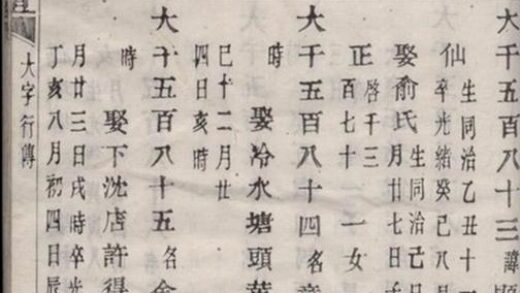 大千五百八十三 諱
仙 生同治乙丑十一
卒光緒癸巳八月
娶俞氏 生同治己
月廿七日
正 啓千三
百七十 一女
大千五百八十四 名
時 娶冷水塘頭葉
巳十二月廿
四日亥時
大千五百八十五 名
時 娶下沈店許得
月廿三日戌時卒光
丁亥八月初四日辰
大字行傳